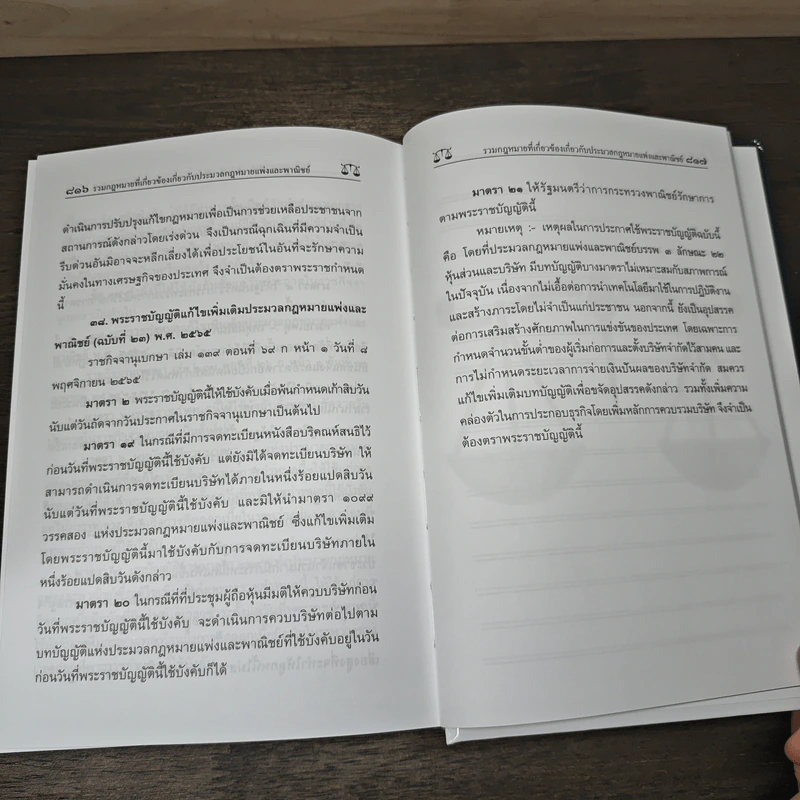 ๘๑๖ รวมกฎหมายที่เกี่ยวข้องเกี่ยวกับประมวลกฎหมายแพ่งและพาณิชย์
ดำเนินการปรับปรุงแก้ไขกฎหมายเพื่อเป็นการช่วยเหลือประชาชนจาก
สถานการณ์ดังกล่าวโดยเร่งด่วน จึงเป็นกรณีฉุกเฉินที่มีความจำเป็น
รีบด่วนอันมิอาจจะหลีกเลี่ยงได้เพื่อประโยชน์ในอันที่จะรักษาความ
มั่นคงในทางเศรษฐกิจของประเทศ จึงจำเป็นต้องตราพระราชกำหนด
นี้
๓๘. พระราชบัญญัติแก้ไขเพิ่มเติมประมวลกฎหมายแพ่งและ
พาณิชย์ (ฉบับที่ ๒๓) พ.ศ. ๒๕๖๕
ราชกิจจานุเบกษา เล่ม ๑๓๙ ตอนที่ ๖๙ ก หน้า ๑ วันที่ ๘
พฤศจิกายน ๒๕๖๕
มาตรา ๒ พระราชบัญญัตินี้ให้ใช้บังคับเมื่อพ้นกำหนดเก้าสิบวัน
นับแต่วันถัดจากวันประกาศในราชกิจจานุเบกษาเป็นต้นไป
มาตรา ๑๙ ในกรณีที่มีการจดทะเบียนหนังสือบริคณห์สนธิไว้
ก่อนวันที่พระราชบัญญัตินี้ใช้บังคับ แต่ยังมิได้จดทะเบียนบริษัท ให้
สามารถดำเนินการจดทะเบียนบริษัทได้ภายในหนึ่งร้อยแปดสิบวัน
นับแต่วันที่พระราชบัญญัตินี้ใช้บังคับ และมิให้นำมาตรา ๑๐๙๙
วรรคสอง แห่งประมวลกฎหมายแพ่งและพาณิชย์ ซึ่งแก้ไขเพิ่มเติม
โดยพระราชบัญญัตินี้มาใช้บังคับกับการจดทะเบียนบริษัทภายใน
หนึ่งร้อยแปดสิบวันดังกล่าว
มาตรา ๒๐ ในกรณีที่ที่ประชุมผู้ถือหุ้นมีมติให้ควบบริษัทก่อน
วันที่พระราชบัญญัตินี้ใช้บังคับ จะดำเนินการควบบริษัทต่อไปตาม
บทบัญญัติแห่งประมวลกฎหมายแพ่งและพาณิชย์ที่ใช้บังคับอยู่ในวัน
ก่อนวันที่พระราชบัญญัตินี้ใช้บังคับก็ได้
รวมกฎหมายที่เกี่ยวข้องเกี่ยวกับประมวลกฎหมายแพ่งและพาณิชย์ ๘๑๗
มาตรา ๒๑ ให้รัฐมนตรีว่าการกระทรวงพาณิชย์รักษาการ
ตามพระราชบัญญัตินี้
หมายเหตุ :- เหตุผลในการประกาศใช้พระราชบัญญัติฉบับนี้
คือ โดยที่ประมวลกฎหมายแพ่งและพาณิชย์บรรพ ๓ ลักษณะ ๒๒
หุ้นส่วนและบริษัท มีบทบัญญัติบางมาตราไม่เหมาะสมกับสภาพการณ์
ในปัจจุบัน เนื่องจากไม่เอื้อต่อการนำเทคโนโลยีมาใช้ในการปฏิบัติงาน
และสร้างภาระโดยไม่จำเป็นแก่ประชาชน นอกจากนี้ ยังเป็นอุปสรรค
ต่อการเสริมสร้างศักยภาพในการแข่งขันของประเทศ โดยเฉพาะการ
กำหนดจำนวนขั้นต่ำของผู้เริ่มก่อการและตั้งบริษัทจำกัดไว้สามคน และ
การไม่กำหนดระยะเวลาการจ่ายเงินปันผลของบริษัทจำกัด สมควร
แก้ไขเพิ่มเติมบทบัญญัติเพื่อขจัดอุปสรรคดังกล่าว รวมทั้งเพิ่มความ
คล่องตัวในการประกอบธุรกิจโดยเพิ่มหลักการควบรวมบริษัท จึงจำเป็น
ต้องตราพระราชบัญญัตินี้